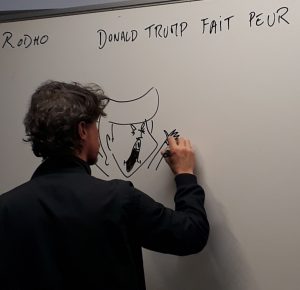 RODHO DONALD TRUMP FAIT PEUR